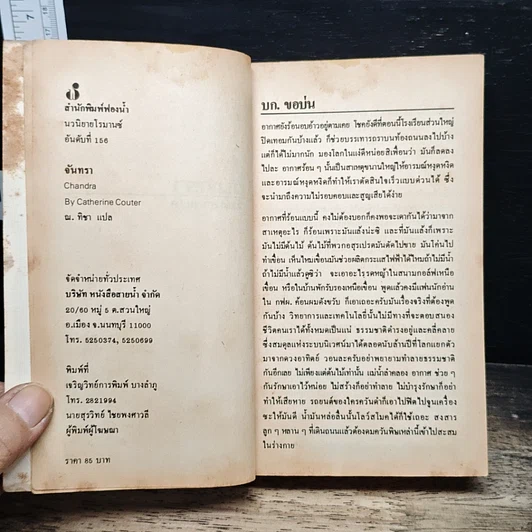 7
สำนักพิมพ์ฟองน้ำ
นวนิยายโรมานซ์
อันดับที่ 156
จันทรา
Chandra
By Catherine Couter
ฌ. ทิชา แปล
จัดจำหน่ายทั่วประเทศ
บริษัท หนังสือสายน้ำ จำกัด
20/60 หมู่ 5 ต.สวนใหญ่
อ.เมือง จ.นนทบุรี 11000
โทร. 5250374, 5250699
พิมพ์ที่
เจริญวิทย์การพิมพ์ บางลำภู
โทร. 2821994
นายสุรวิทย์ ไชยพงศาวลี
ผู้พิมพ์ผู้โฆษณา
ราคา 85 บาท
บก. ขอบ่น
อากาศยังร้อนอบอ้าวอยู่ตามเคย โชคยังดีที่ตอนนี้โรงเรียนส่วนใหญ่
ปิดเทอมกันบ้างแล้ว ก็ช่วยบรรเทารถราบนท้องถนนลงไปบ้าง
แต่ก็ได้ไม่มากนัก มองโลกในแง่ดีหน่อยสิเพื่อนว่า มันก็ลดลง
ไปละ อากาศร้อน ๆ นั้นเป็นสาเหตุขนานใหญ่ให้อารมณ์หงุดหงิด
และอารมณ์หงุดหงิดก็ทำให้เราตัดสินใจเร็วแบบด่วนได้ ซึ่ง
จะนำมาถึงความไม่รอบคอบและสูญเสียได้ง่าย
อากาศที่ร้อนแบบนี้ คงไม่ต้องบอกก็คงพอจะเดากันได้ว่ามาจาก
สาเหตุอะไร ก็ร้อนเพราะมันแล้งน่ะซิ และที่มันแล้งก็เพราะ
มันไม่มีต้นไม้ ต้นไม้ที่พวกอสุรเปรตมันตัดไปขาย มันโค่นไป
ทำเขื่อน เห็นไหมเขื่อนมันช่วยผลิตกระแสไฟฟ้าได้ไหมถ้าไม่มีน้ำ
ถ้าไม่มีน้ำแล้วดูซิว่า จะเอาอะไรรดหญ้าในสนามกอล์ฟเหนือ
เขื่อน หรือในบ้านพักรับรองเหนือเขื่อน พูดแล้วคงมีแฟนนักอ่าน
ใน กฟผ. ค้อนผมดังขวับ ก็เอาเถอะครับมันเรื่องจริงที่ต้องพูด
กันบ้าง วิทยาการและเทคโนโลยี่นั้นไม่มีทางที่จะตอบสนอง
ชีวิตคนเราได้ทั้งหมดเป็นแน่ ธรรมชาติดำรงอยู่และคลี่คลาย
ซึ่งสมดุลแห่งระบบนิเวศน์มาได้ตลอดนับล้านปีที่โลกแยกตัว
มาจากดวงอาทิตย์ วอนละครับอย่าพยายามทำลายธรรมชาติ
กันอีกเลย ไม่เพียงแต่ต้นไม้เท่านั้น แม่น้ำลำคลอง อากาศ ช่วย ๆ
กันรักษาเอาไว้หน่อย ไม่สร้างก็อย่าทำลาย ไม่บำรุงรักษาก็อย่า
ทำให้เสียหาย รถยนต์ของใครควันดำก็เอาไปฟิตไปจูนเครื่อง
ซะให้มันดี น้ำมันหล่อลื่นนั้นโลว์สโม้คได้ก็ใช้เถอะ สงสาร
ลูก ๆ หลาน ๆ ที่เดินถนนแล้วต้องดมควันพิษเหล่านี้เข้าไปสะสม
ในร่างกาย